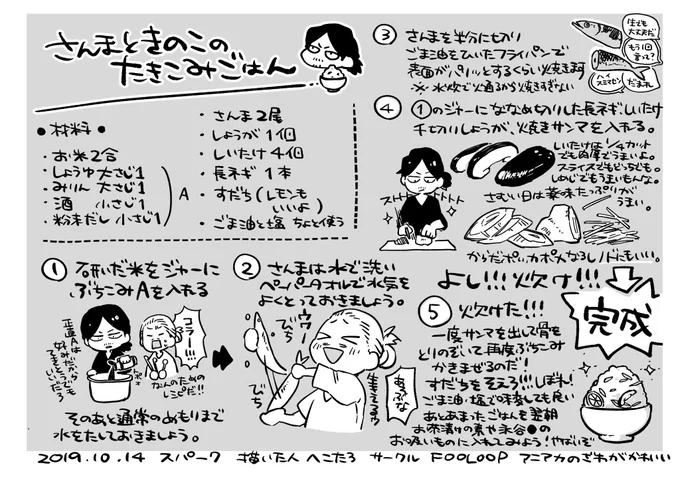 さんまときのこの
たきこみごはん
●材料●
・お米2合
・しょうゆ大さじ1
・みりん 大さじ1
・酒 小さじ1
・粉末だし 小さじ1
A
・さんま2尾
・しょうが 1個
・しいたけ 4個
・長ネギ 1本
・すだち(レモンも
いいよ)
・ごま油と塩 ちょと使う
① 研いだ米をジャーに
ぶちこみAを入れる
コラー!!!
なんのための
レシピだ!!
正直Aは
好みだから
てきとうでも
いいだろ
そのあと通常のめもりまで
水をたしておきましょう。
② さんまは水で洗い
ペーパータオルで水気を
よくとっておきましょう。
ウワー
びち
びち
生きてるゥ
あぶな
③ さんまを半分にきり
ごま油をひいたフライパンで
表面がパリッとするくらい焼きます
※水炊で火通るから焼きすぎない
生でも
大丈夫だ
もう1回
言って?
ハイ
スミマセン
だまれ
④ ①のジャーにななめ切りした長ネギ、しいたけ
千切りしょうが、焼きサンマを入れる。
しいたけは1/4カット
でも肉厚でうまいよ。
スライスでもどっちでも。
しめじでもうまいもんな。
ストトトトトト
さむい日は薬味たっぷりが
うまい。
からだポッカポカんなるしノドにもいい
よし!!!炊け!!!
⑤ 炊けた!!!
一度サンマを出して骨を
とりのぞいて再度ぶちこみ
かきまぜるのだ!
すだちをそえろ!!!しぼれ!
ごま油・塩で味変しても良い
あとあまったごはんを翌朝
お茶漬けの素や永谷●の
お吸いものに入れてみよう!やばいぞ
完成
2019.10.14 スパーク 描いた人 へこたろ サークル FOOLOOP アニアカのざわがかわいい